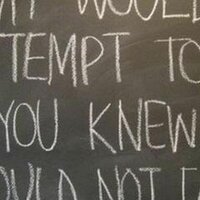 AT WOULD
TEMPT TO
YOU KNEW
OULD NOT F